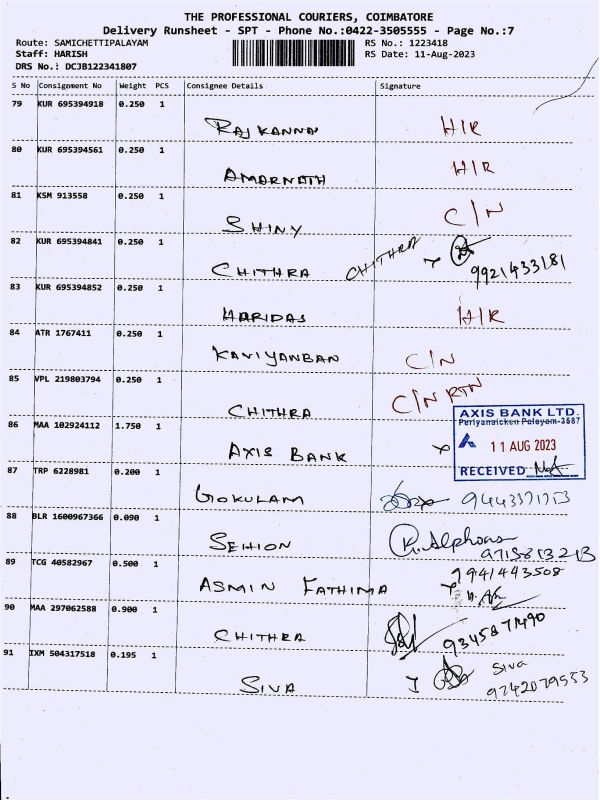 THE PROFESSIONAL COURIERS, COIMBATORE
Delivery Runsheet - SPT - Phone No.:0422-3505555 - Page No.:7
Route: SAMICHETTIPALAYAM RS No.: 1223418
Staff: HARISH RS Date: 11-Aug-2023
DRS No.: DCJB122341807
S No Consignment No Weight PCS Consignee Details Signature
79 KUR 695394918 0.250 1
RAJKANNA H/R
80 KUR 695394561 0.250 1
AMARNATH H/R
81 KSM 913558 0.250 1
SHINY C/N
82 KUR 695394841 0.250 1
CHITHRA CHITHRA 9921433181
83 KUR 695394852 0.250 1
HARIDAS H/R
84 ATR 1767411 0.250 1
KAVIYANBAN C/N
85 VPL 219803794 0.250 1
CHITHRA C/N RTN
86 MAA 102924112 1.750 1
AXIS BANK
AXIS BANK LTD.
Periyanaicken Palayam-3687
11 AUG 2023
RECEIVED
87 TRP 6228981 0.200 1
GOKULAM
88 BLR 1600967366 0.090 1
SEHION K. Alphons
89 TCG 40582967 0.500 1
ASMIN FATHIMA 9941443508
90 MAA 297062588 0.900 1
CHITHRA 9345871490
91 IXM 504317518 0.195 1
SIVA Siva
9742079553